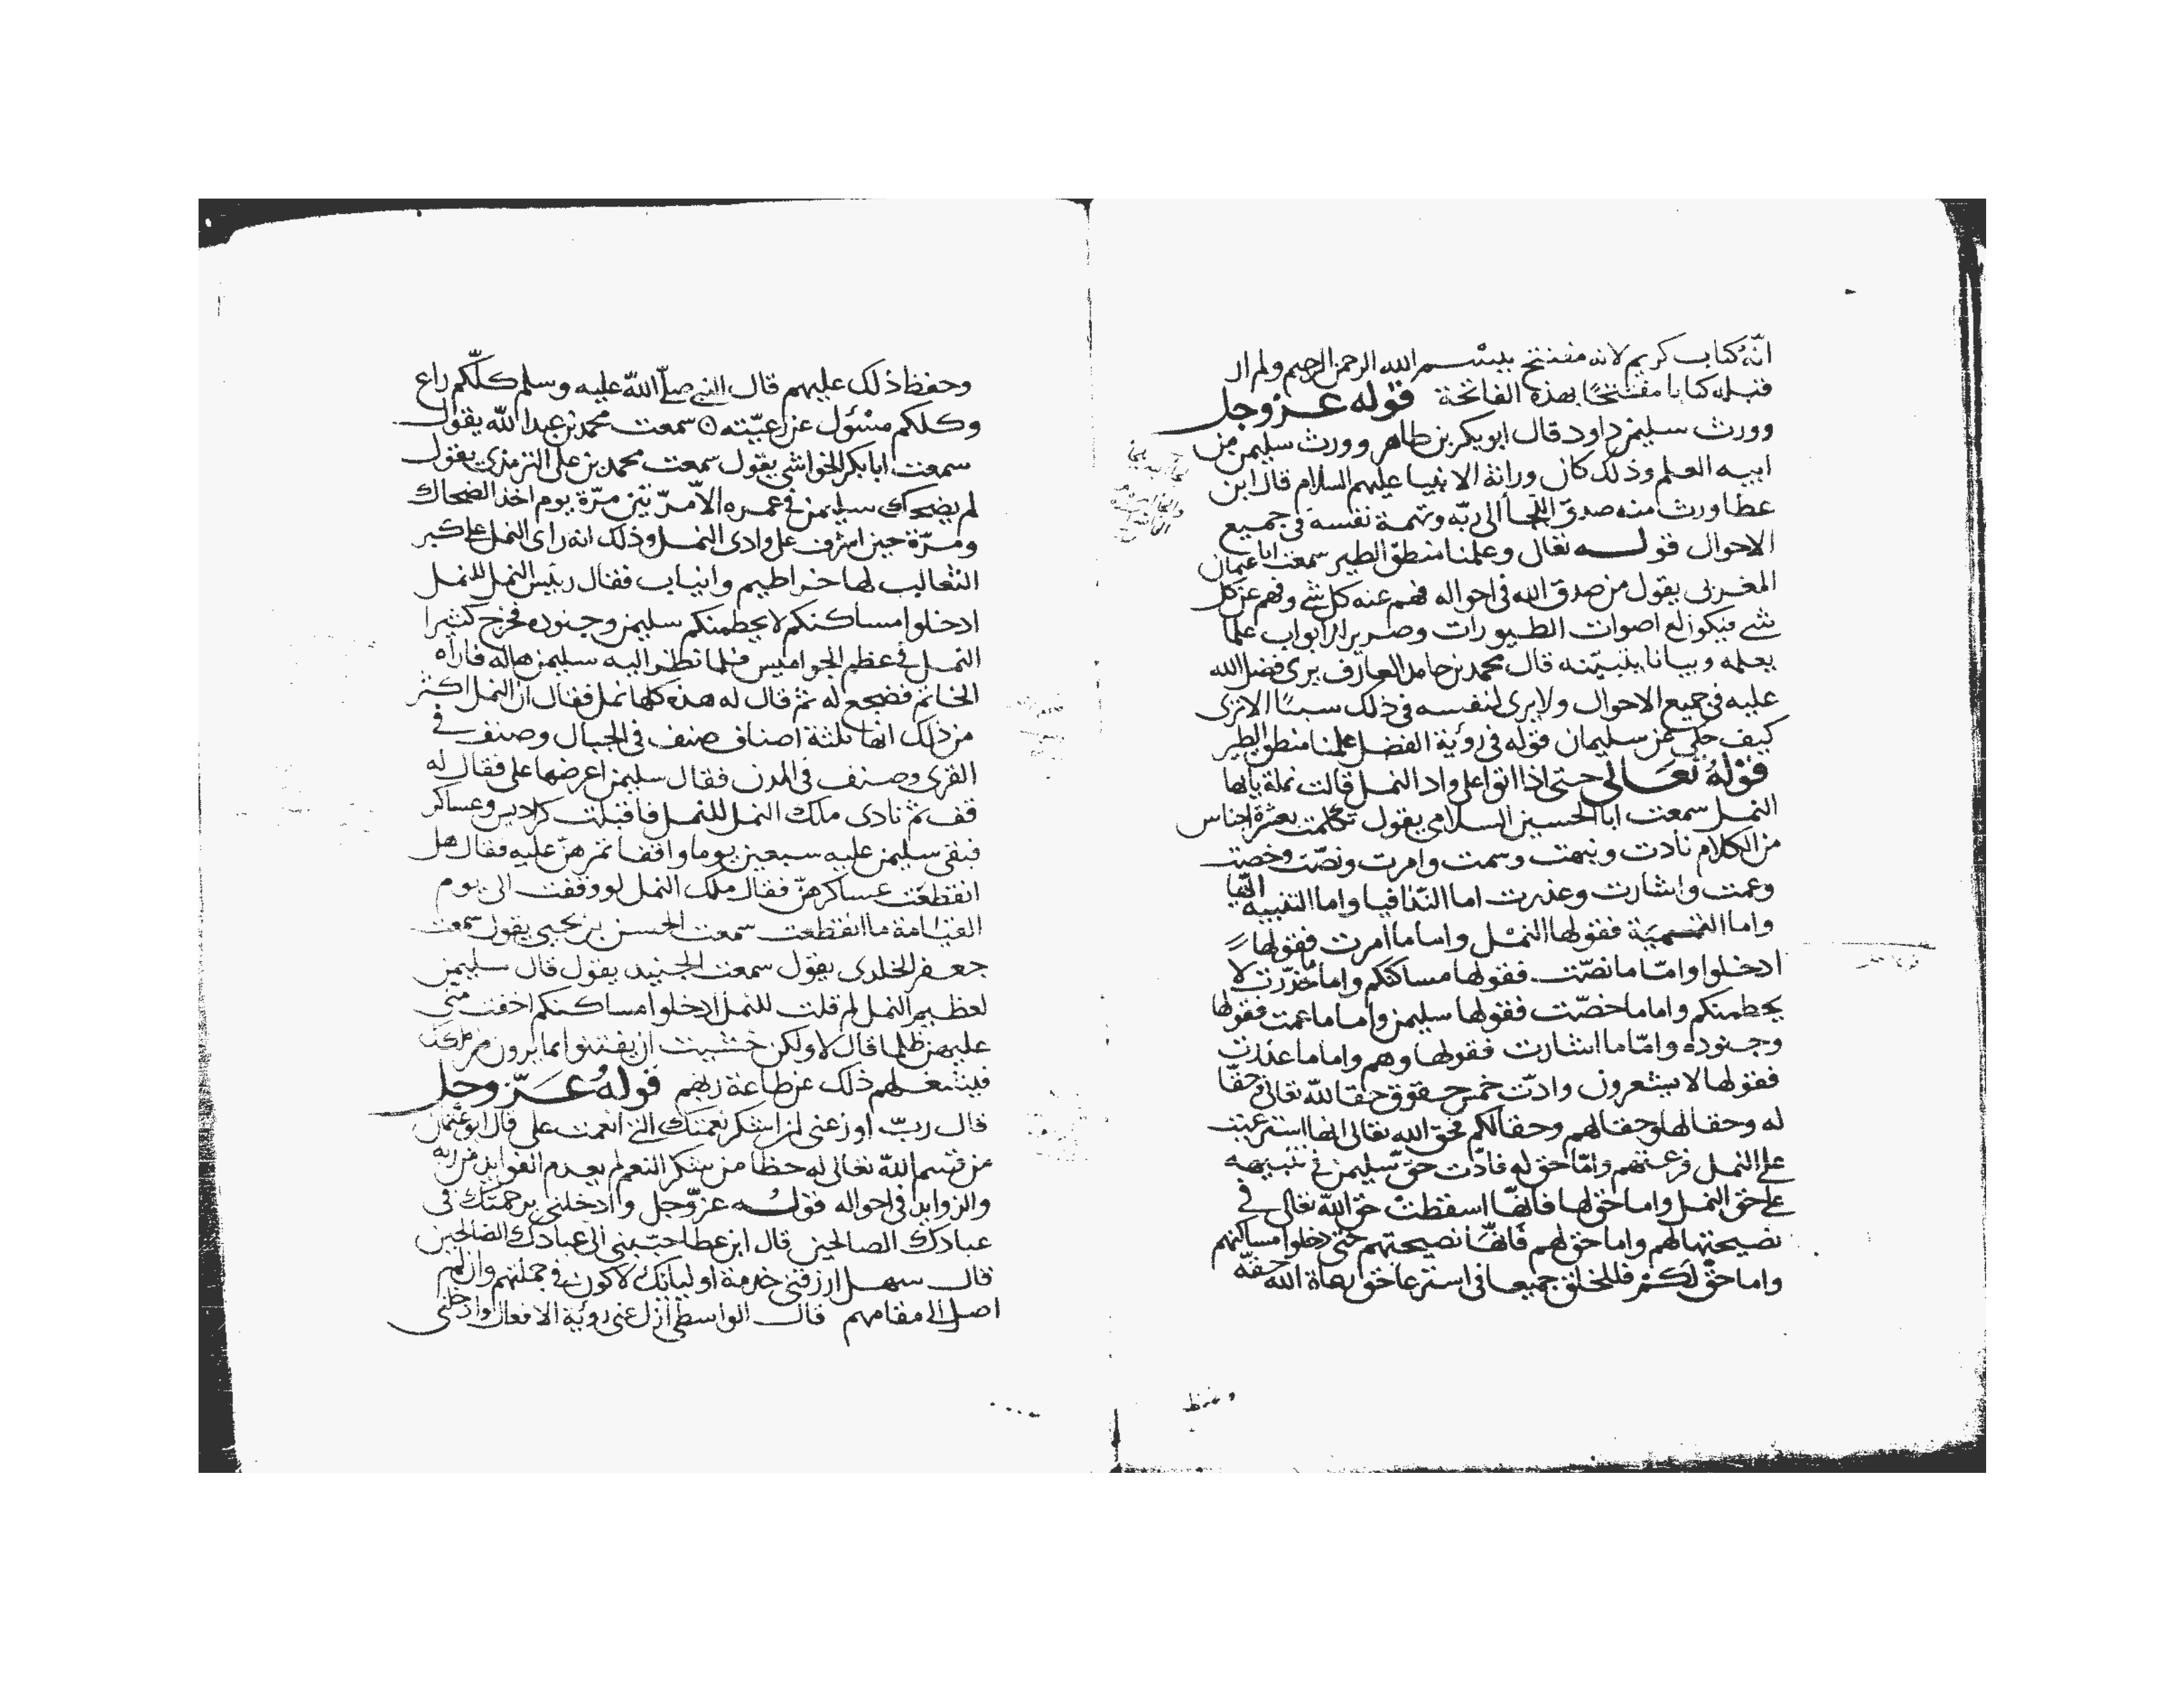 انّه كتاب كريم لانه مفتتح ببسم الله الرحمن الرحيم ولم ار
قبله كتابا مفتتحًا بهذه الفاتحة قوله عز وجل
وورث سليمن داود قال ابو بكر بن طاهر وورث سليمن من
ابيه العلم وذلك كان وراثة الانبيا عليهم السلام قال ابن
عطا ورث منه صدق اللجأ الى ربّه وتهمة نفسه في جميع
الاحوال قوله تعالى وعلمنا منطق الطير سمعت ابا عثمان
المغربى يقول من صدق الله في احواله فهم عنه كل شي وفهم عن كل
شي فيكون له اصوات الطيورات وصرير الابواب علما
يعلمه وبيانا يتبيّنه قال محمد بن حامد العارف يرى فضل الله
عليه في جميع الاحوال ولا يرى لنفسه في ذلك سببًا الا ترى
كيف حكى عن سليمان قوله في رؤية الفضل علمنا منطق الطير
قوله تعالى حتى اذا اتوا على واد النمل قالت نملة يايها
النمل سمعت ابا الحسين السلامي يقول تكلمت بعشرة اجناس
من الكلام نادت ونبهت وسمت وامرت ونصّت وخصت
وعمت واشارت وعذرت اما الندا فيا واما التنبيه ايّها
واما التسمية فقولها النمل واما ما امرت فقولها
ادخلوا وامّا ما نصّت فقولها مساكنكم واما ما حذّرت لا
يحطمنكم واما ما خصّت فقولها سليمن واما ما عمت فقولها
وجنوده وامّا ما اشارت فقولها وهم واما ما عذرت
فقولها لا يشعرون وادّت خمس حقوق حقا لله تعالى وحقّا
له وحقا لها وحقا لهم وحقا لكم فحق الله تعالى انها استرعيت
على النمل فرعتهم وامّا حق له فادّت حقّ سليمن في تنبيهه
على حق النمل واما حق لها فانّها اسقطت حق الله تعالى في
نصيحتها لهم واما حق لهم فانّها نصيحتهم حتى دخلوا مساكنهم
واما حقّ لكم فللخلق جميعا في استرعا حق رعاة الله حقّه
وحفظ ذلك عليهم قال النبي صلّى اللّه عليه وسلم كلّكم راع
وكلكم مسْئول عن رعيّته سمعت محمد بن عبد اللّه يقول
سمعت ابا بكر الخواشي يقول سمعت محمد بن على الترمذي يقول
لم يضحك سليمن في عمره الاّ مرّتين مرّة يوم اخذ الضحاك
ومرّة حين اشرف على وادى النمل وذلك انه راى النمل على كبر
الثعالب لها خراطيم وانياب فقال رئيس النمل للنمل
ادخلوا مساكنكم لا يحطمنكم سليمن وجنوده فخرج كثيرا
النمل في عظم الجواميس فلما نظر اليه سليمن هاله فاراه
الخاتم فضجع له ثم قال له هذه كلها نمل فقال انّ النمل اكثر
من ذلك انها ثلثة اصناف صنف في الجبال وصنف في
القرى وصنف في المدن فقال سليمن اعرضها على فقال له
قف ثم نادى ملك النمل للنمل فاقبلت كراديس وعساكر
فبقى سليمن عليه سبعين يوما واقفا تمر هنّ عليه فقال هل
انقطعت عساكرهنّ فقال ملك النمل لو وقفت الى يوم
القيامة ما انقطعت سمعت الحسن بن يحيى يقول سمعت
جعفر الخلدى يقول سمعت الجنيد يقول قال سليمن
لعظيم النمل لم قلت للنمل ادخلوا مساكنكم اخفت منّى
عليهن ظلما قال لا ولكن خشيت ان يفتنوا بما يرون من ملكك
فيشغلهم ذلك عن طاعة ربهم قوله عَزّ وجل
قال ربّ اوزعنى ان اشكر نعمتك التي انعمت على قال ابو عثمان
من قسم اللّه تعالى له حظا من شكر النعم لم يعدم الفوايد من ربّه
والزوايد في احواله قوله عزّوجل وادخلنى برحمتك فى
عبادك الصالحين قال ابن عطا حبّبنى الى عبادك الصالحين
قال سهل ارزقنى خدمة اوليائك لاكون في جملتهم وان لم
اصل الى مقامهم قال الواسطى ازل عنى رؤية الافعال وادخلنى